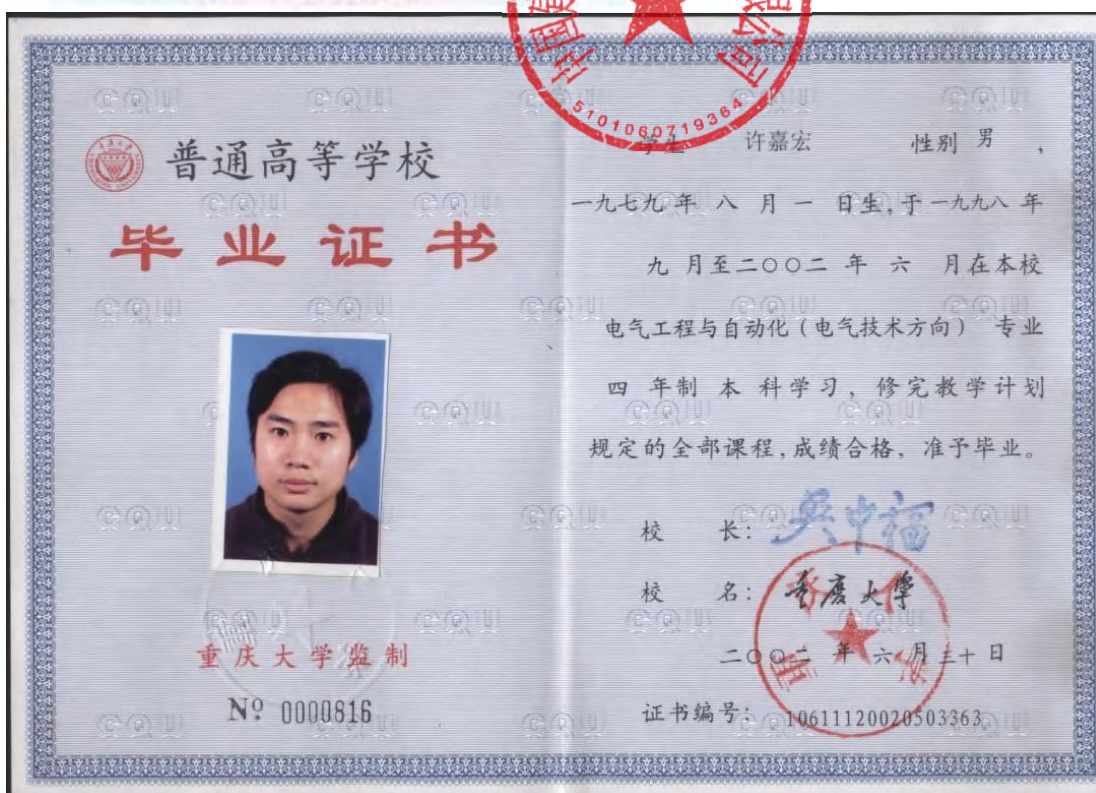 普通高等学校
毕业证书
重庆大学监制
Nº 0000816
5101060719384
学生 许嘉宏 性别 男 ,
一九七九 年 八 月 一 日生,于一九九八 年
九 月至二〇〇二 年 六 月在本校
电气工程与自动化(电气技术方向) 专业
四 年制 本 科学习, 修完教学计划
规定的全部课程,成绩合格, 准予毕业。
校 长: 吴中福
校 名: 重庆大学
二〇〇二 年 六 月 三十 日
证书编号: 10611120020503363